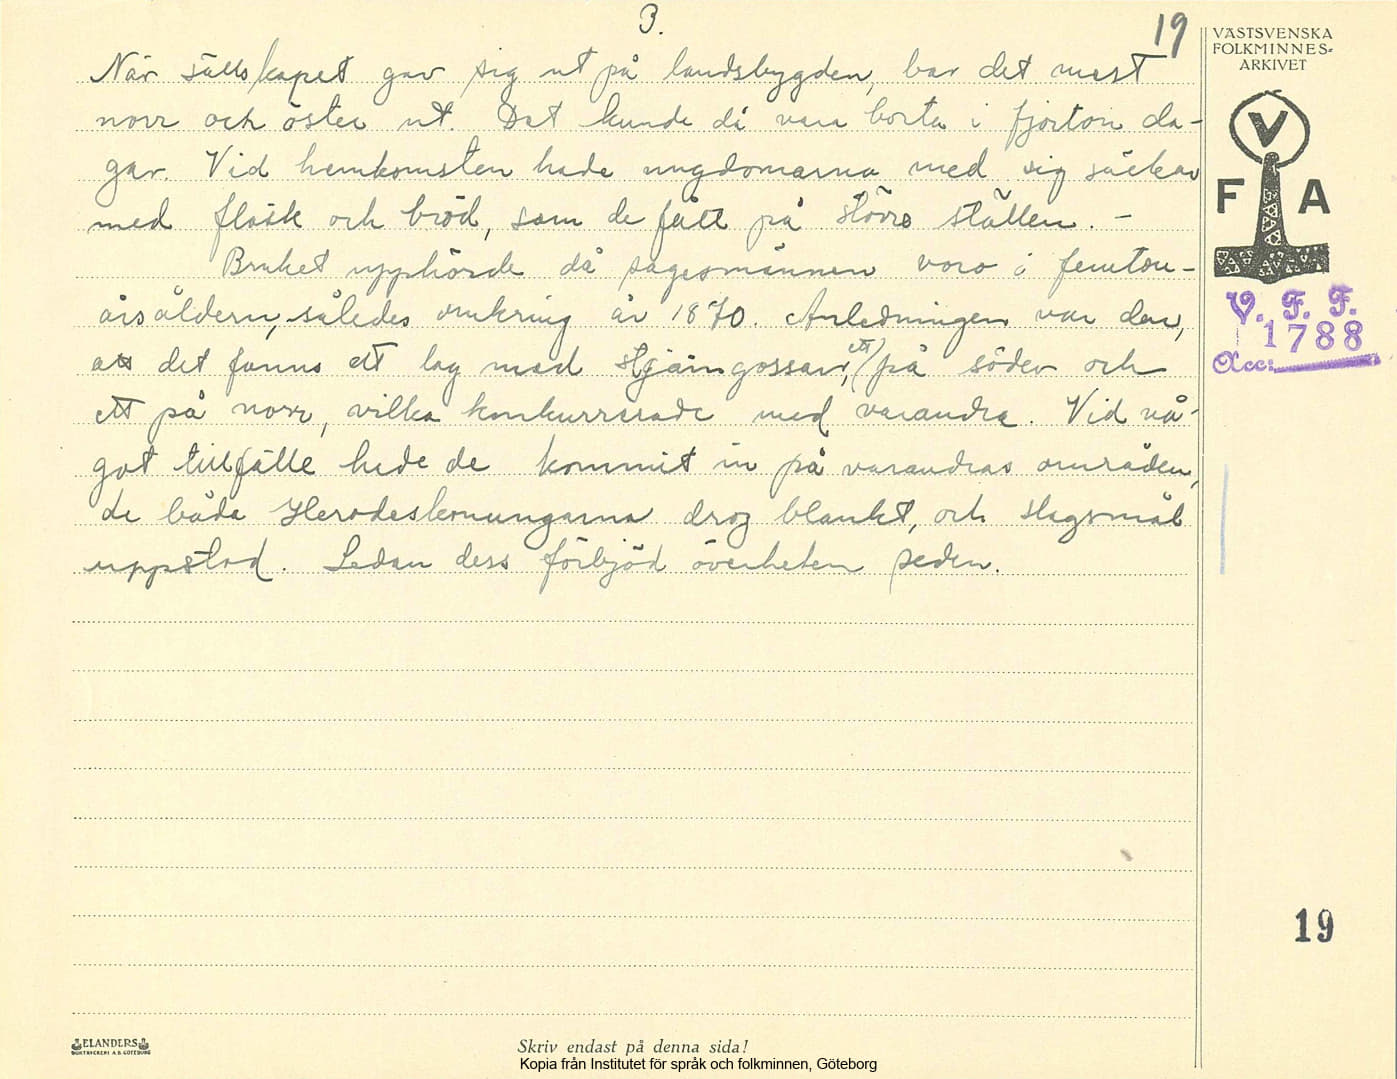 3.
19
När sällskapet gav sig ut på landsbygden, bar det mest
norr och öster ut. Det kunde då vara borta i fjorton da-
gar. Vid hemkomsten hade ungdomarna med sig säckar
med fläsk och bröd, som de fått på större ställen. –
Bruket upphörde då sagesmännen voro i femton-
årsåldern, således omkring år 1870. Anledningen var den,
att det fanns ett lag med stjärngossar, (ett) på söder och
ett på norr, vilka konkurrerade med varandra. Vid nå-
got tillfälle hade de kommit in på varandras områden,
de båda Herodeskonungarna drog blankt, och slagsmål
uppstod. Sedan dess förbjöd överheten seden.
VÄSTSVENSKA
FOLKMINNES-
ARKIVET
V
F A
V. F. F.
1788
Acc:
19
ELANDERS
BOKTRYCKERI A.B. GÖTEBORG
Skriv endast på denna sida!
Kopia från Institutet för språk och folkminnen, Göteborg